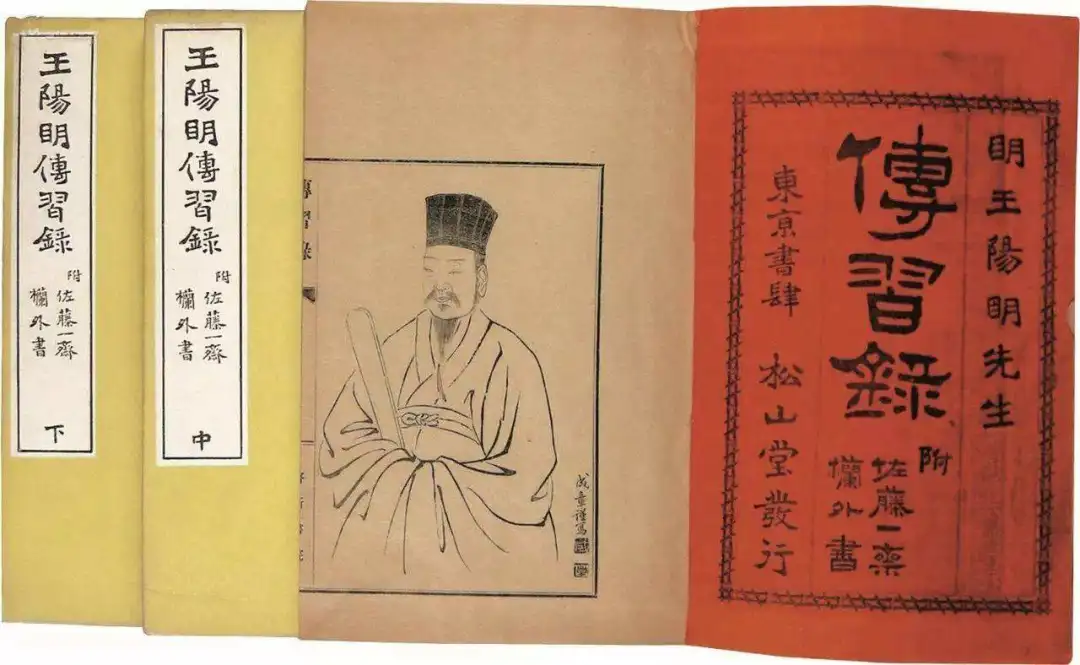 王陽明傳習錄
附
佐藤一齋
欄外書
下
王陽明傳習錄
附
佐藤一齋
欄外書
中
傳習錄
成章謹寫
明王陽明先生
傳習錄
附
佐藤一齋
欄外書
東京書肆 松山堂發行